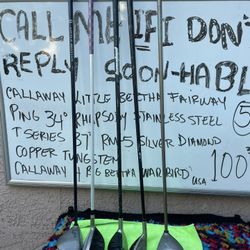 CALL ME IF I DON'T
REPLY SOON-HABL
CALLAWAY LITTLE BERTHA FAIRWAY
PING 34° RHAPSODY STAINLESS STEEL 5
T SERIES 37" RM-5 SILVER DIAMOND
COPPER TUNGSTEN 100
CALLAWAY 4 BIG BERTHA WARBIRD USA